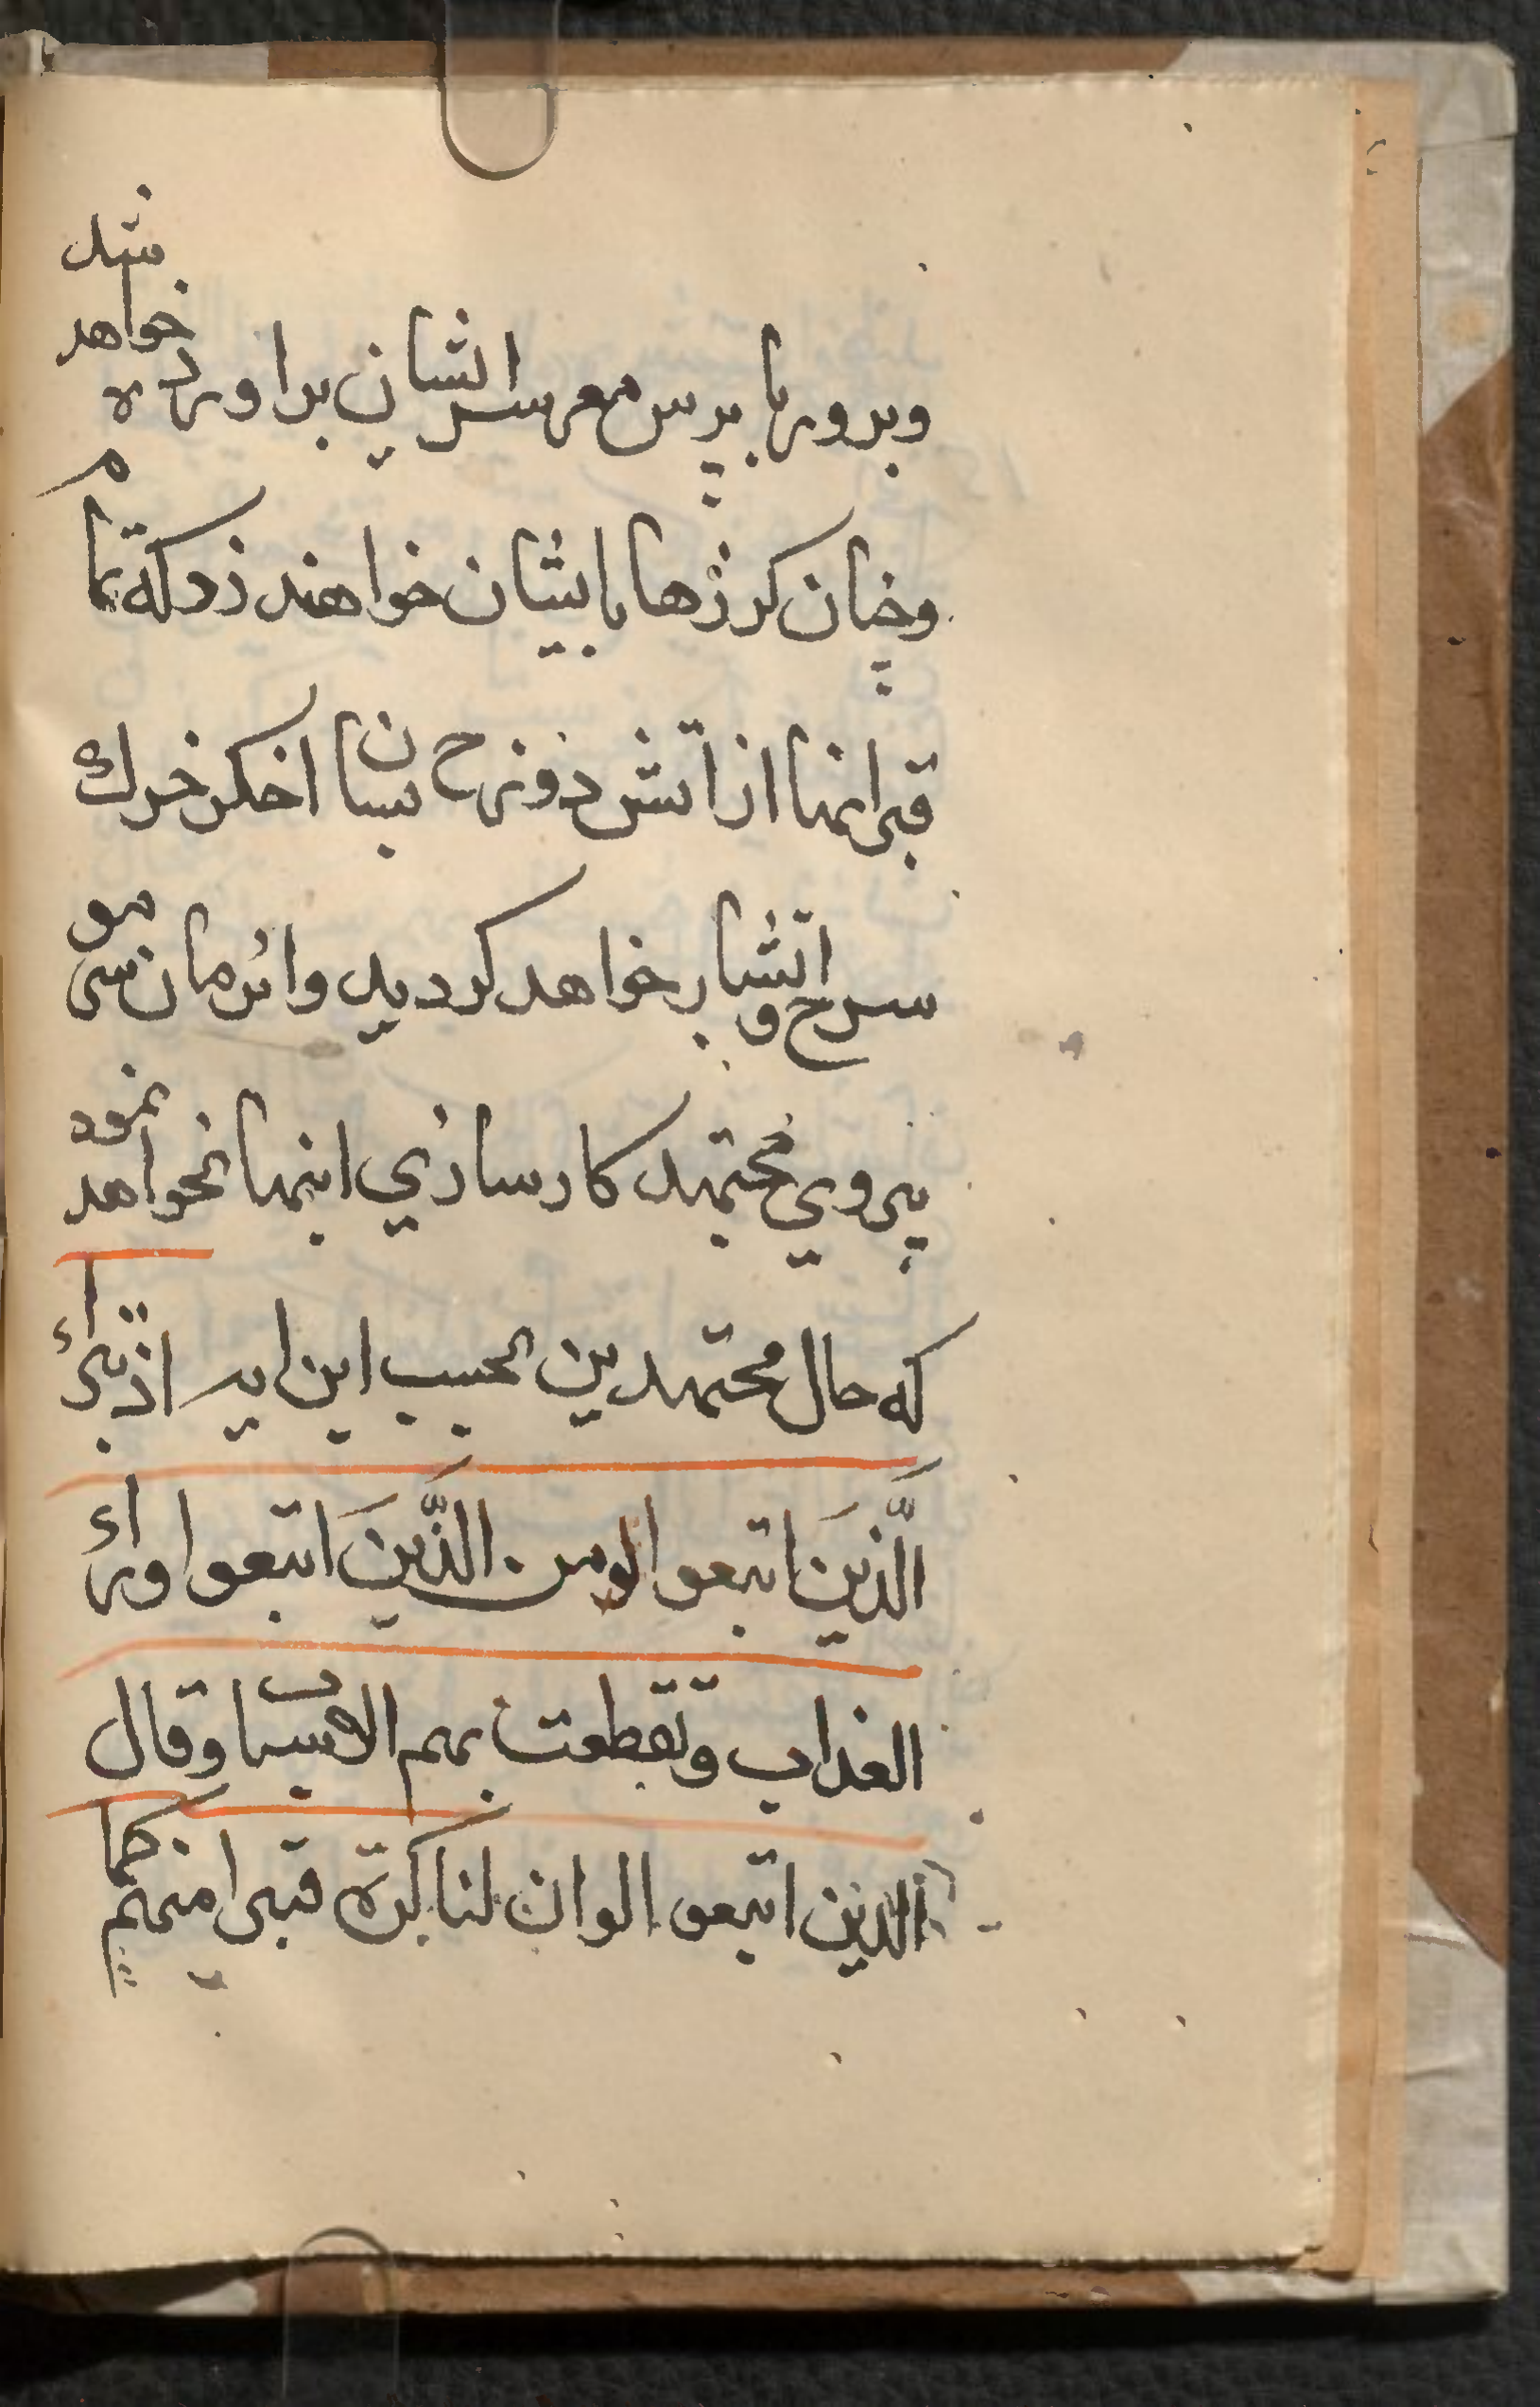 وبرورها برس مغر سر ایشان براورده خواهد شد
وچنان کرزها بایشان خواهند زد که تمام
قبر انها از اتش دوزخ بسان اخکر خرك
سرخ و اتشبار خواهد کردید و ان زمان سی مو
پیروی مجتهد کارسازی اینها نخواهد نموده
که حال مجتهدین بحسب این ایه اذ تبرأ
الَّذينَ اتبعوا من الَّذينَ اتبعوا وراء
العذاب وتقطعت بهم الاسباب وقال
الذين اتبعو الو ان لنا كرة فتبرا منهم كما